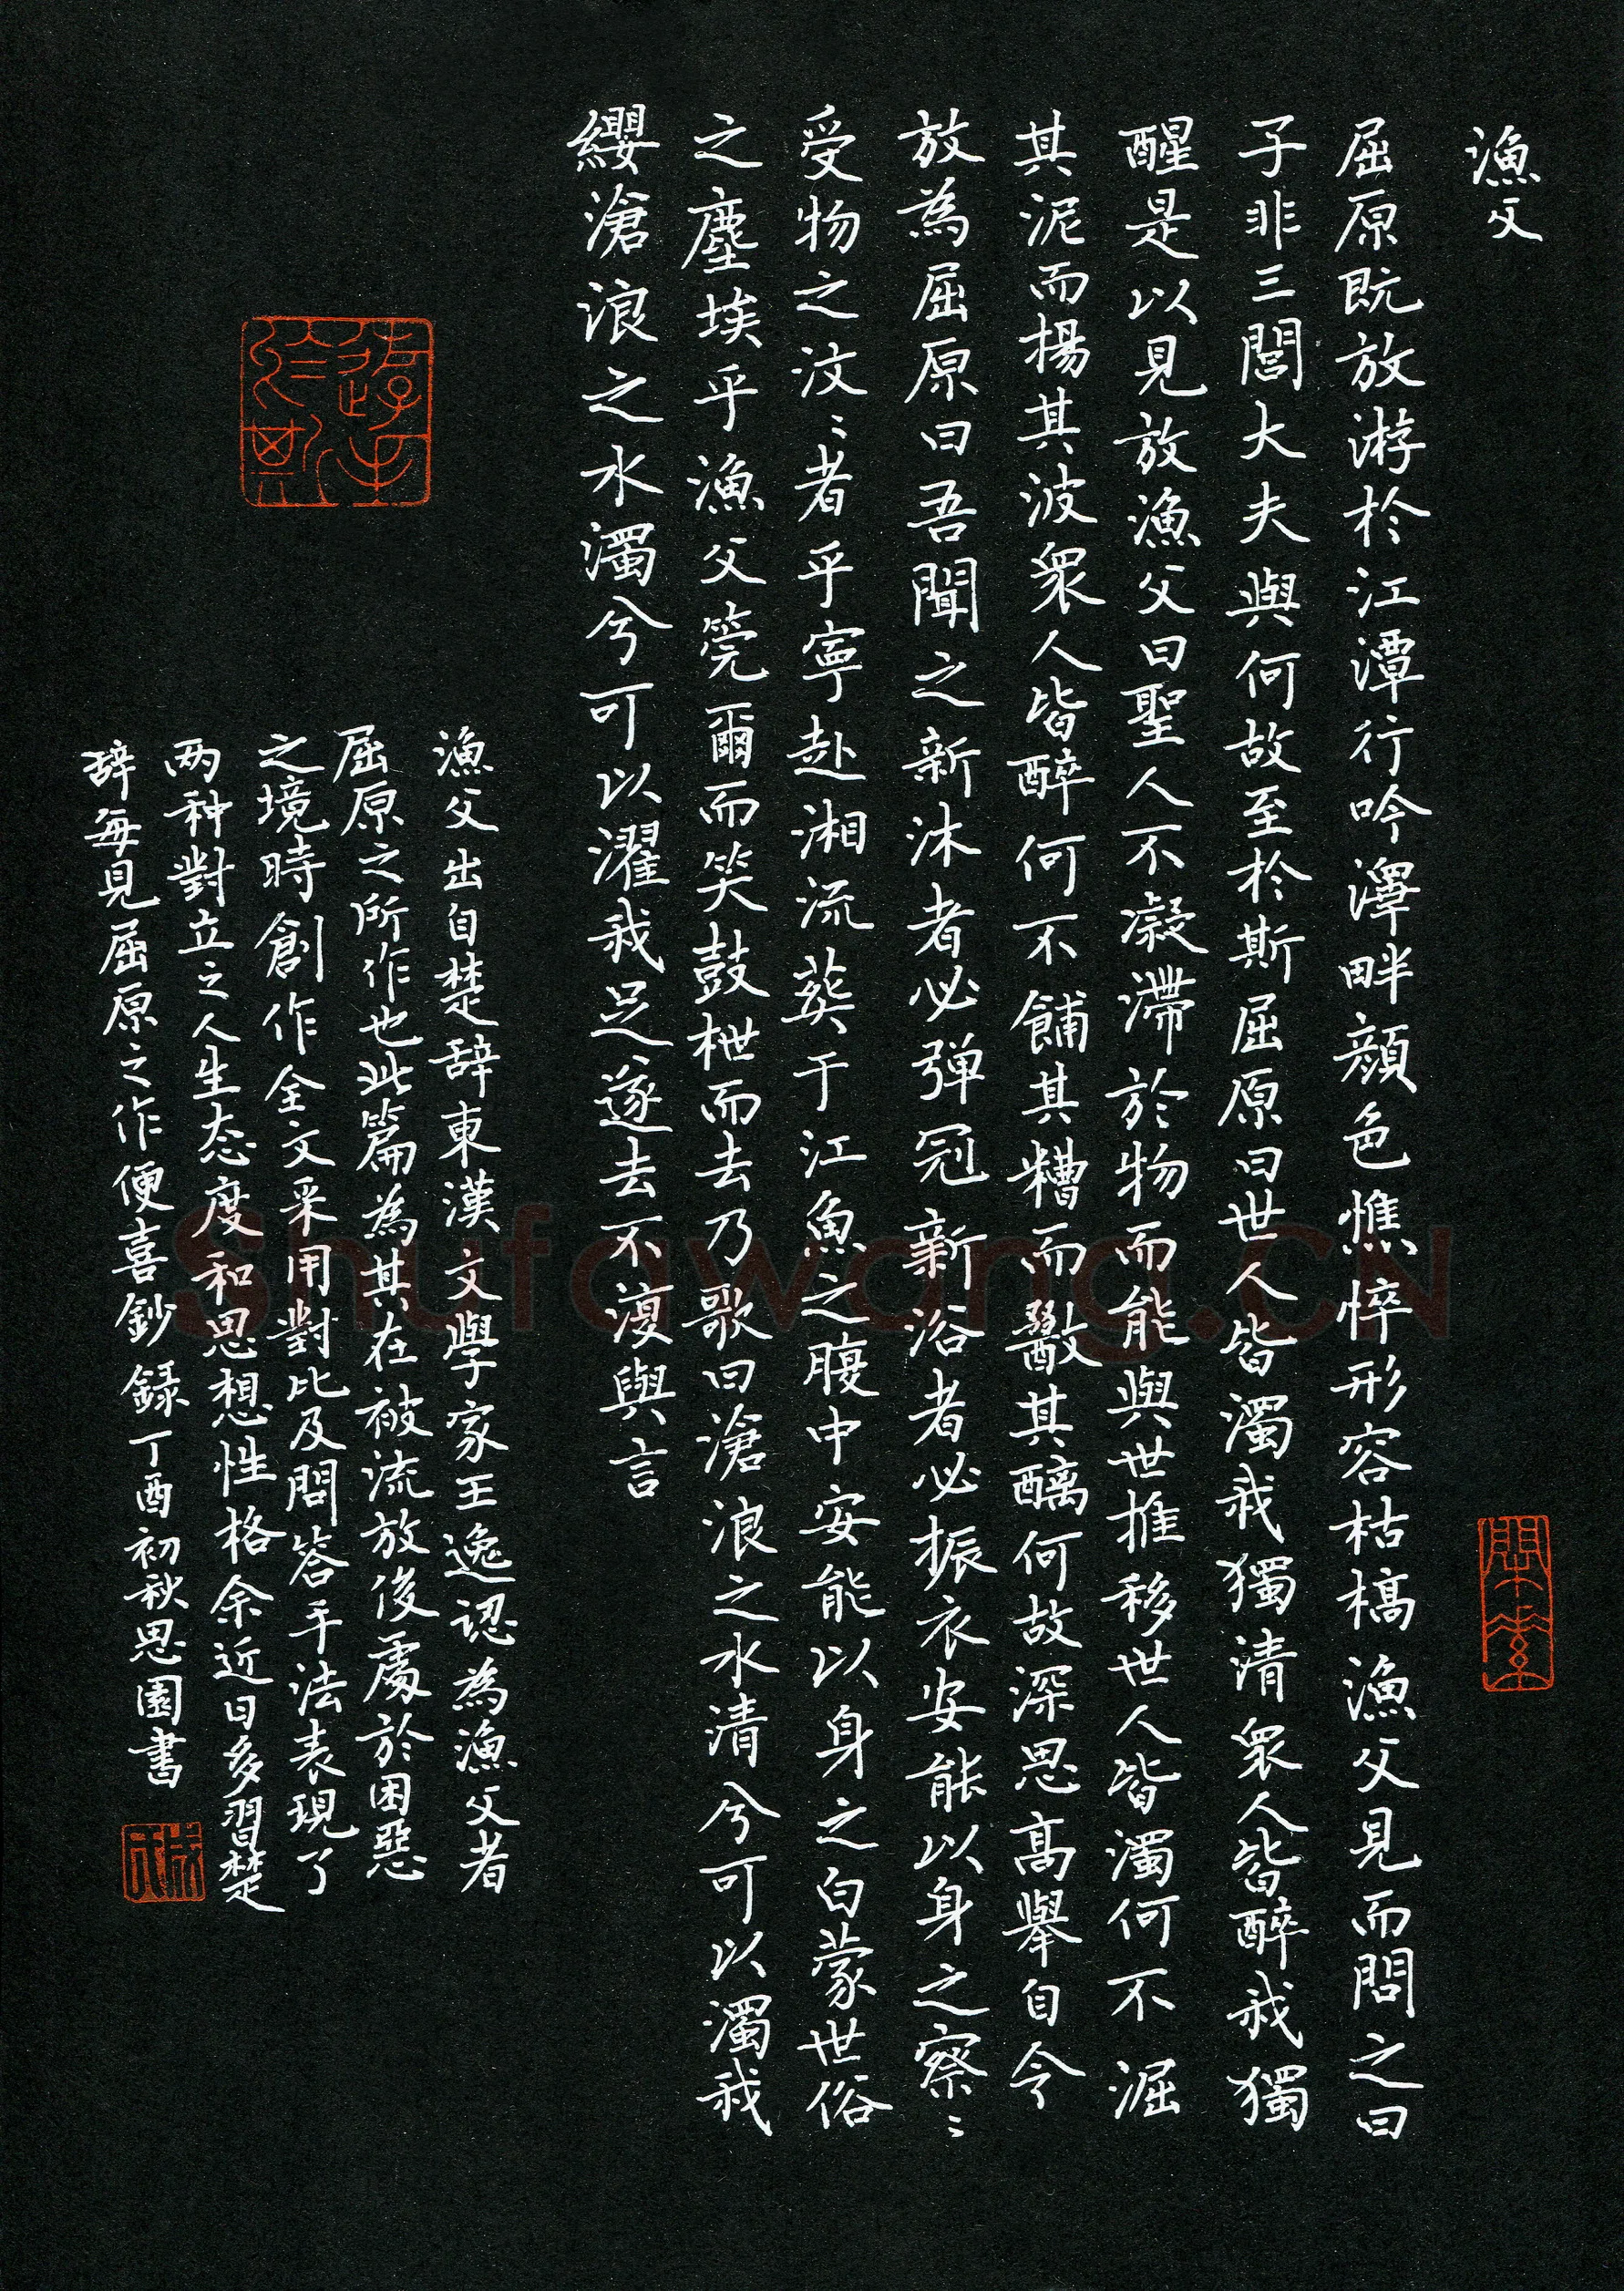 漁父
屈原既放游於江潭行吟澤畔顏色憔悴形容枯槁漁父見而問之曰
子非三閭大夫與何故至於斯屈原曰世人皆濁我獨清衆人皆醉我獨
醒是以見放漁父曰聖人不凝滯於物而能與世推移世人皆濁何不淈
其泥而揚其波衆人皆醉何不餔其糟而歠其醨何故深思高舉自令
放為屈原曰吾聞之新沐者必彈冠新浴者必振衣安能以身之察〻
受物之汶〻者乎寧赴湘流葬于江魚之腹中安能以身之白蒙世俗
之塵埃乎漁父莞爾而笑鼓枻而去乃歌曰滄浪之水清兮可以濁我
纓滄浪之水濁兮可以濯我足遂去不復與言
漁父出自楚辞東漢文學家王逸認為漁父者
屈原之所作也此篇為其在被流放後處於困惡
之境時創作全文采用對比及問答手法表現了
两种對立之人生态度和思想性格余近日多習楚
辞每見屈原之作便喜鈔録丁酉初秋思園書
Shufawang.CN